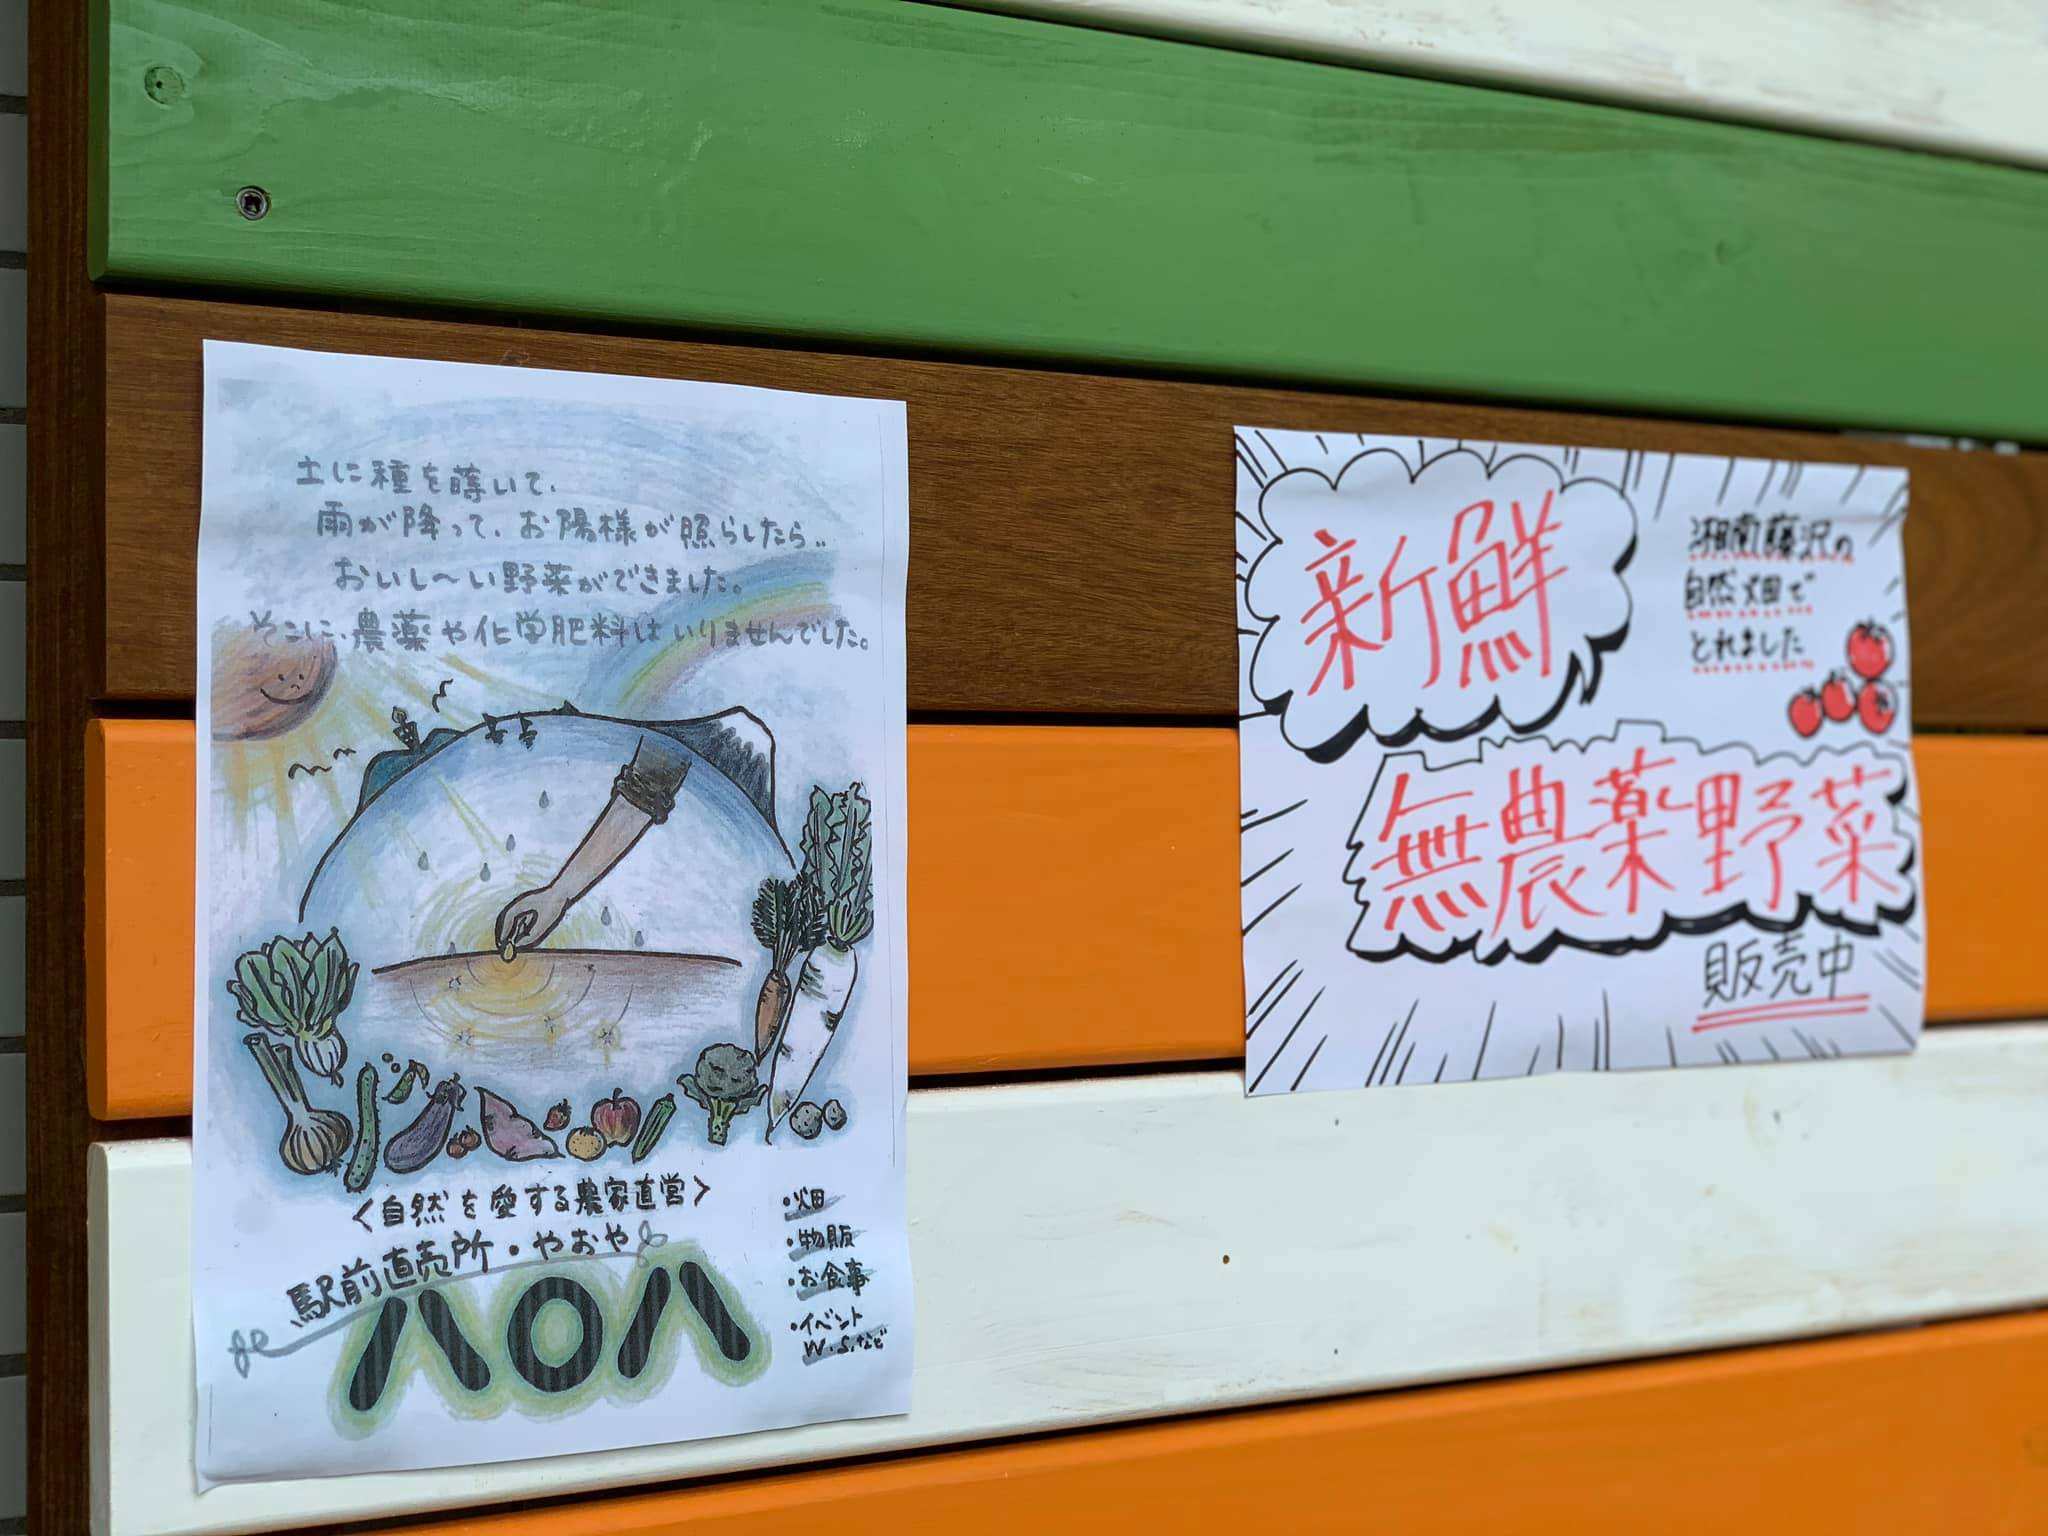 土に種を蒔いて、
雨が降って、お陽様が照らしたら..
おいし〜い野菜ができました。
そこに、農薬や化学肥料はいりませんでした。
<自然を愛する農家直営>
駅前直売所・やおや
ハロハ
・畑
・物販
・お食事
・イベント
W.S.など
新鮮
湘南藤沢の
自然畑で
とれました
無農薬野菜
販売中